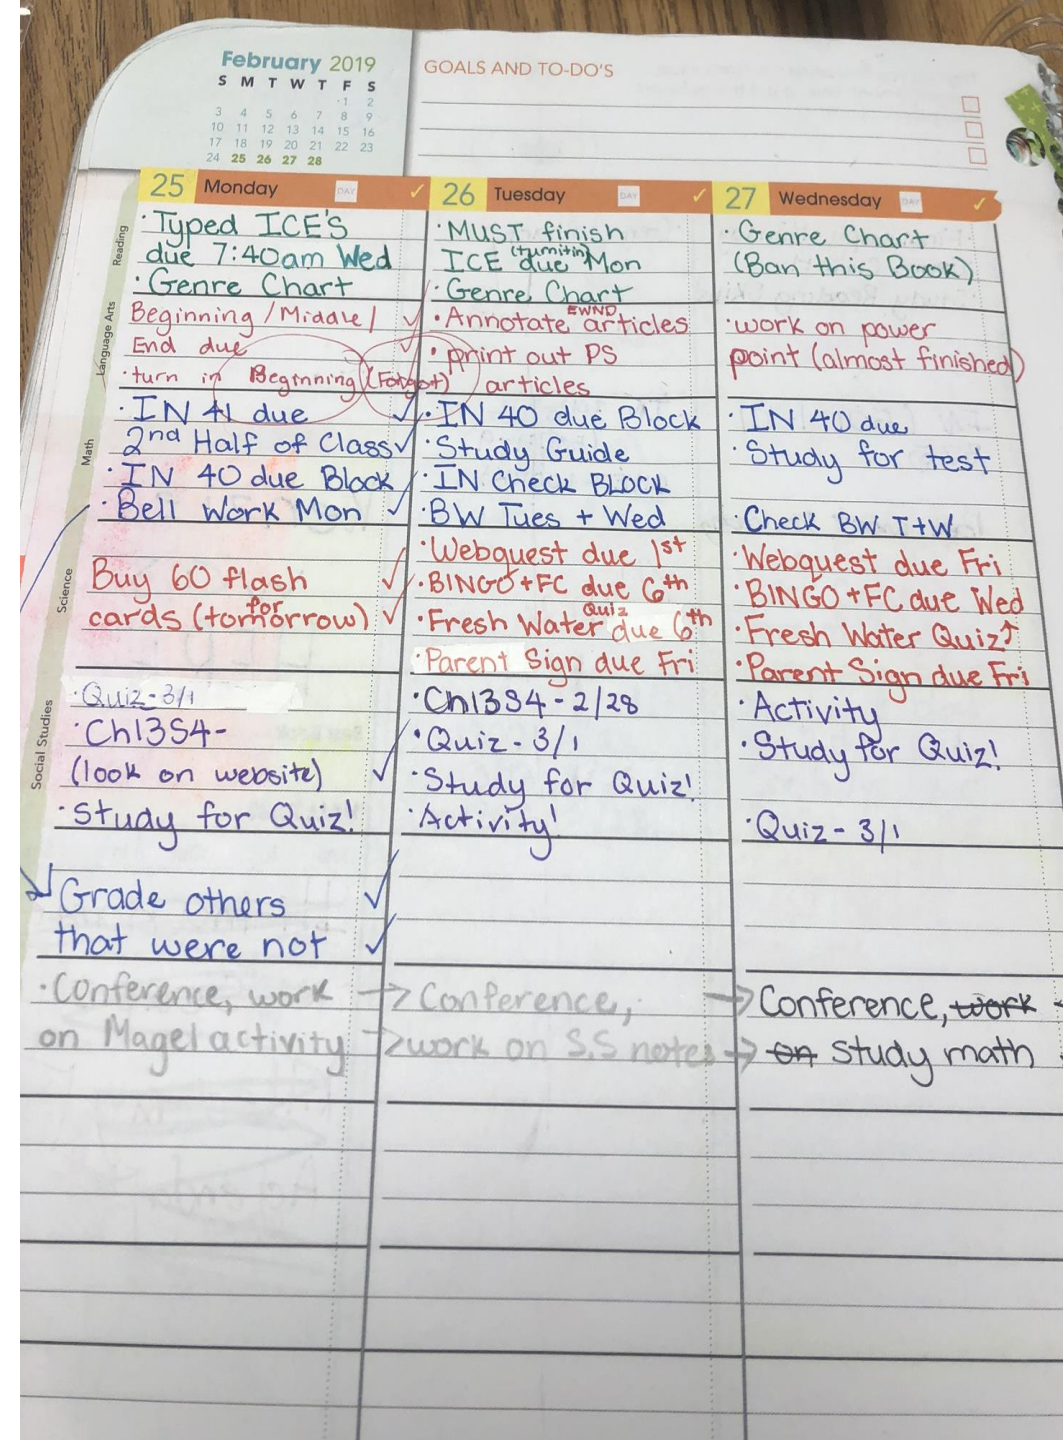 February 2019
S M T W T F S
1 2
3 4 5 6 7 8 9
10 11 12 13 14 15 16
17 18 19 20 21 22 23
24 25 26 27 28
GOALS AND TO-DO'S
25 Monday DAY
Reading
· Typed ICE'S
due 7:40am Wed
· Genre Chart
Language Arts
Beginning / Middle /
End due
· turn in Beginning (Forgot)
Math
· IN 41 due
2nd Half of Class
· IN 40 due Block
· Bell Work Mon
Science
Buy 60 flash
cards (for tomorrow)
Social Studies
· Quiz - 3/1
· Ch13S4-
(look on website)
· Study for Quiz!
Grade others
that were not
· Conference, work
on Magel activity
26 Tuesday DAY
· MUST finish
ICE (turnitin) due Mon
· Genre Chart
· Annotate EWND articles
· print out PS
articles
· IN 40 due Block
· Study Guide
· IN Check BLOCK
· BW Tues + Wed
· Webquest due 1st
· BINGO + FC due 6th
· Fresh Water Quiz due 6th
· Parent Sign due Fri
· Ch13S4 - 2/28
· Quiz - 3/1
· Study for Quiz!
· Activity!
→ Conference,
→ work on S.S notes
27 Wednesday DAY
· Genre Chart
(Ban this Book)
· work on power
point (almost finished)
· IN 40 due
· Study for test
· Check BW T+W
· Webquest due Fri
· BINGO + FC due Wed
· Fresh Water Quiz ↑
· Parent Sign due Fri
· Activity
· Study for Quiz!
· Quiz - 3/1
→ Conference, work
→ on study math